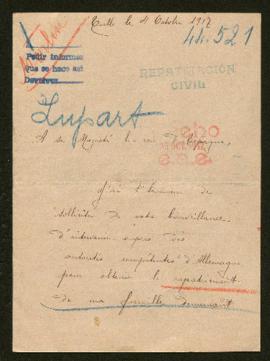 le 4 Octobre 1917
44.521
Pedir informes
que se hace así
Devolver.
REPATRIACIÓN
CIVIL
Lupart
A sa Majesté le roi d'Espagne,
J'ai l'honneur de
solliciter de votre bienveillance
d'intervenir auprès des
autorités compétentes d'Allemagne
pour obtenir le rapatriement
de ma famille demeurant